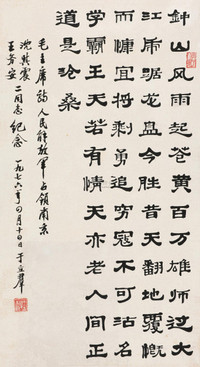 钟山风雨起苍黄百万雄师过大
江虎踞龙盘今胜昔天翻地覆慨
而慷宜将剩勇追穷寇不可沽名
学霸王天若有情天亦老人间正
道是沧桑
毛主席诗人民解放军占领南京
沈其震
二同志纪念 一九七六年四月十四日 于立群